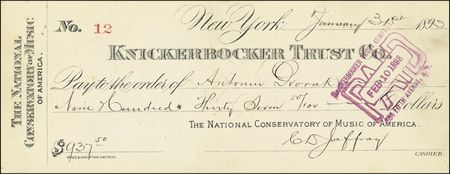 THE NATIONAL
CONSERVATORY OF MUSIC
OF AMERICA.
New York January 31st 1893
No. 12
KNICKERBOCKER TRUST CO.
Pay to the order of Antonin Dvorak
Nine Hundred & Thirty Seven 50/100 Dollars
PAID
FEB 10 1893
THE NATIONAL CONSERVATORY OF MUSIC OF AMERICA.
$937.50
CASHIER.